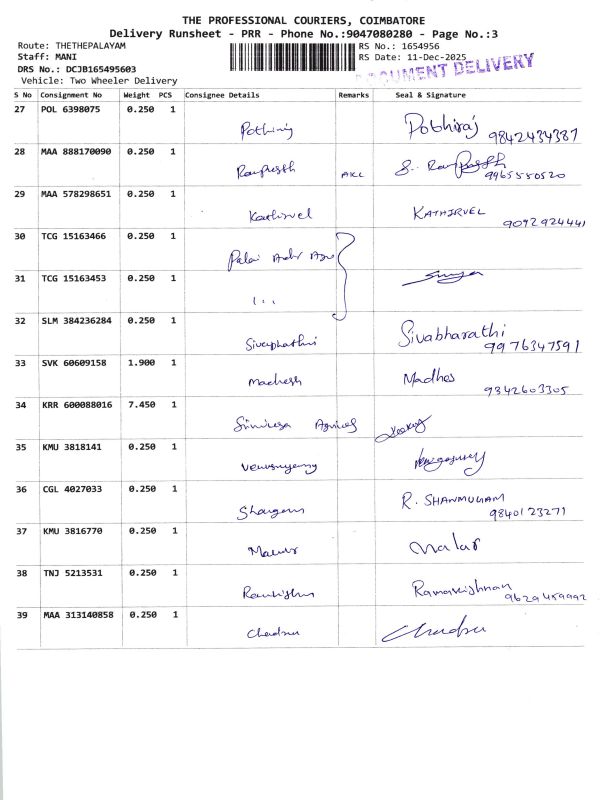 THE PROFESSIONAL COURIERS, COIMBATORE
Delivery Runsheet - PRR - Phone No.:9047080280 - Page No.:3
Route: THETHEPALAYAM RS No.: 1654956
Staff: MANI RS Date: 11-Dec-2025
DRS No.: DCJB165495603
DOCUMENT DELIVERY
Vehicle: Two Wheeler Delivery
S No Consignment No Weight PCS Consignee Details Remarks Seal & Signature
27 POL 6398075 0.250 1
Pothiraj
9842434387
28 MAA 888170090 0.250 1
9965550520
29 MAA 578298651 0.250 1
Kathirvel KATHIRVEL
9092924441
30 TCG 15163466 0.250 1
31 TCG 15163453 0.250 1
Surya
32 SLM 384236284 0.250 1
Sivabharathi
9976347591
33 SVK 60609158 1.900 1
Madhesh Madhes
9342603305
34 KRR 600088016 7.450 1
35 KMU 3818141 0.250 1
36 CGL 4027033 0.250 1
R. SHANMUGAM
9840123271
37 KMU 3816770 0.250 1
Malar
38 TNJ 5213531 0.250 1
Ramakrishnan
9629459992
39 MAA 313140858 0.250 1
Chadru Chadru